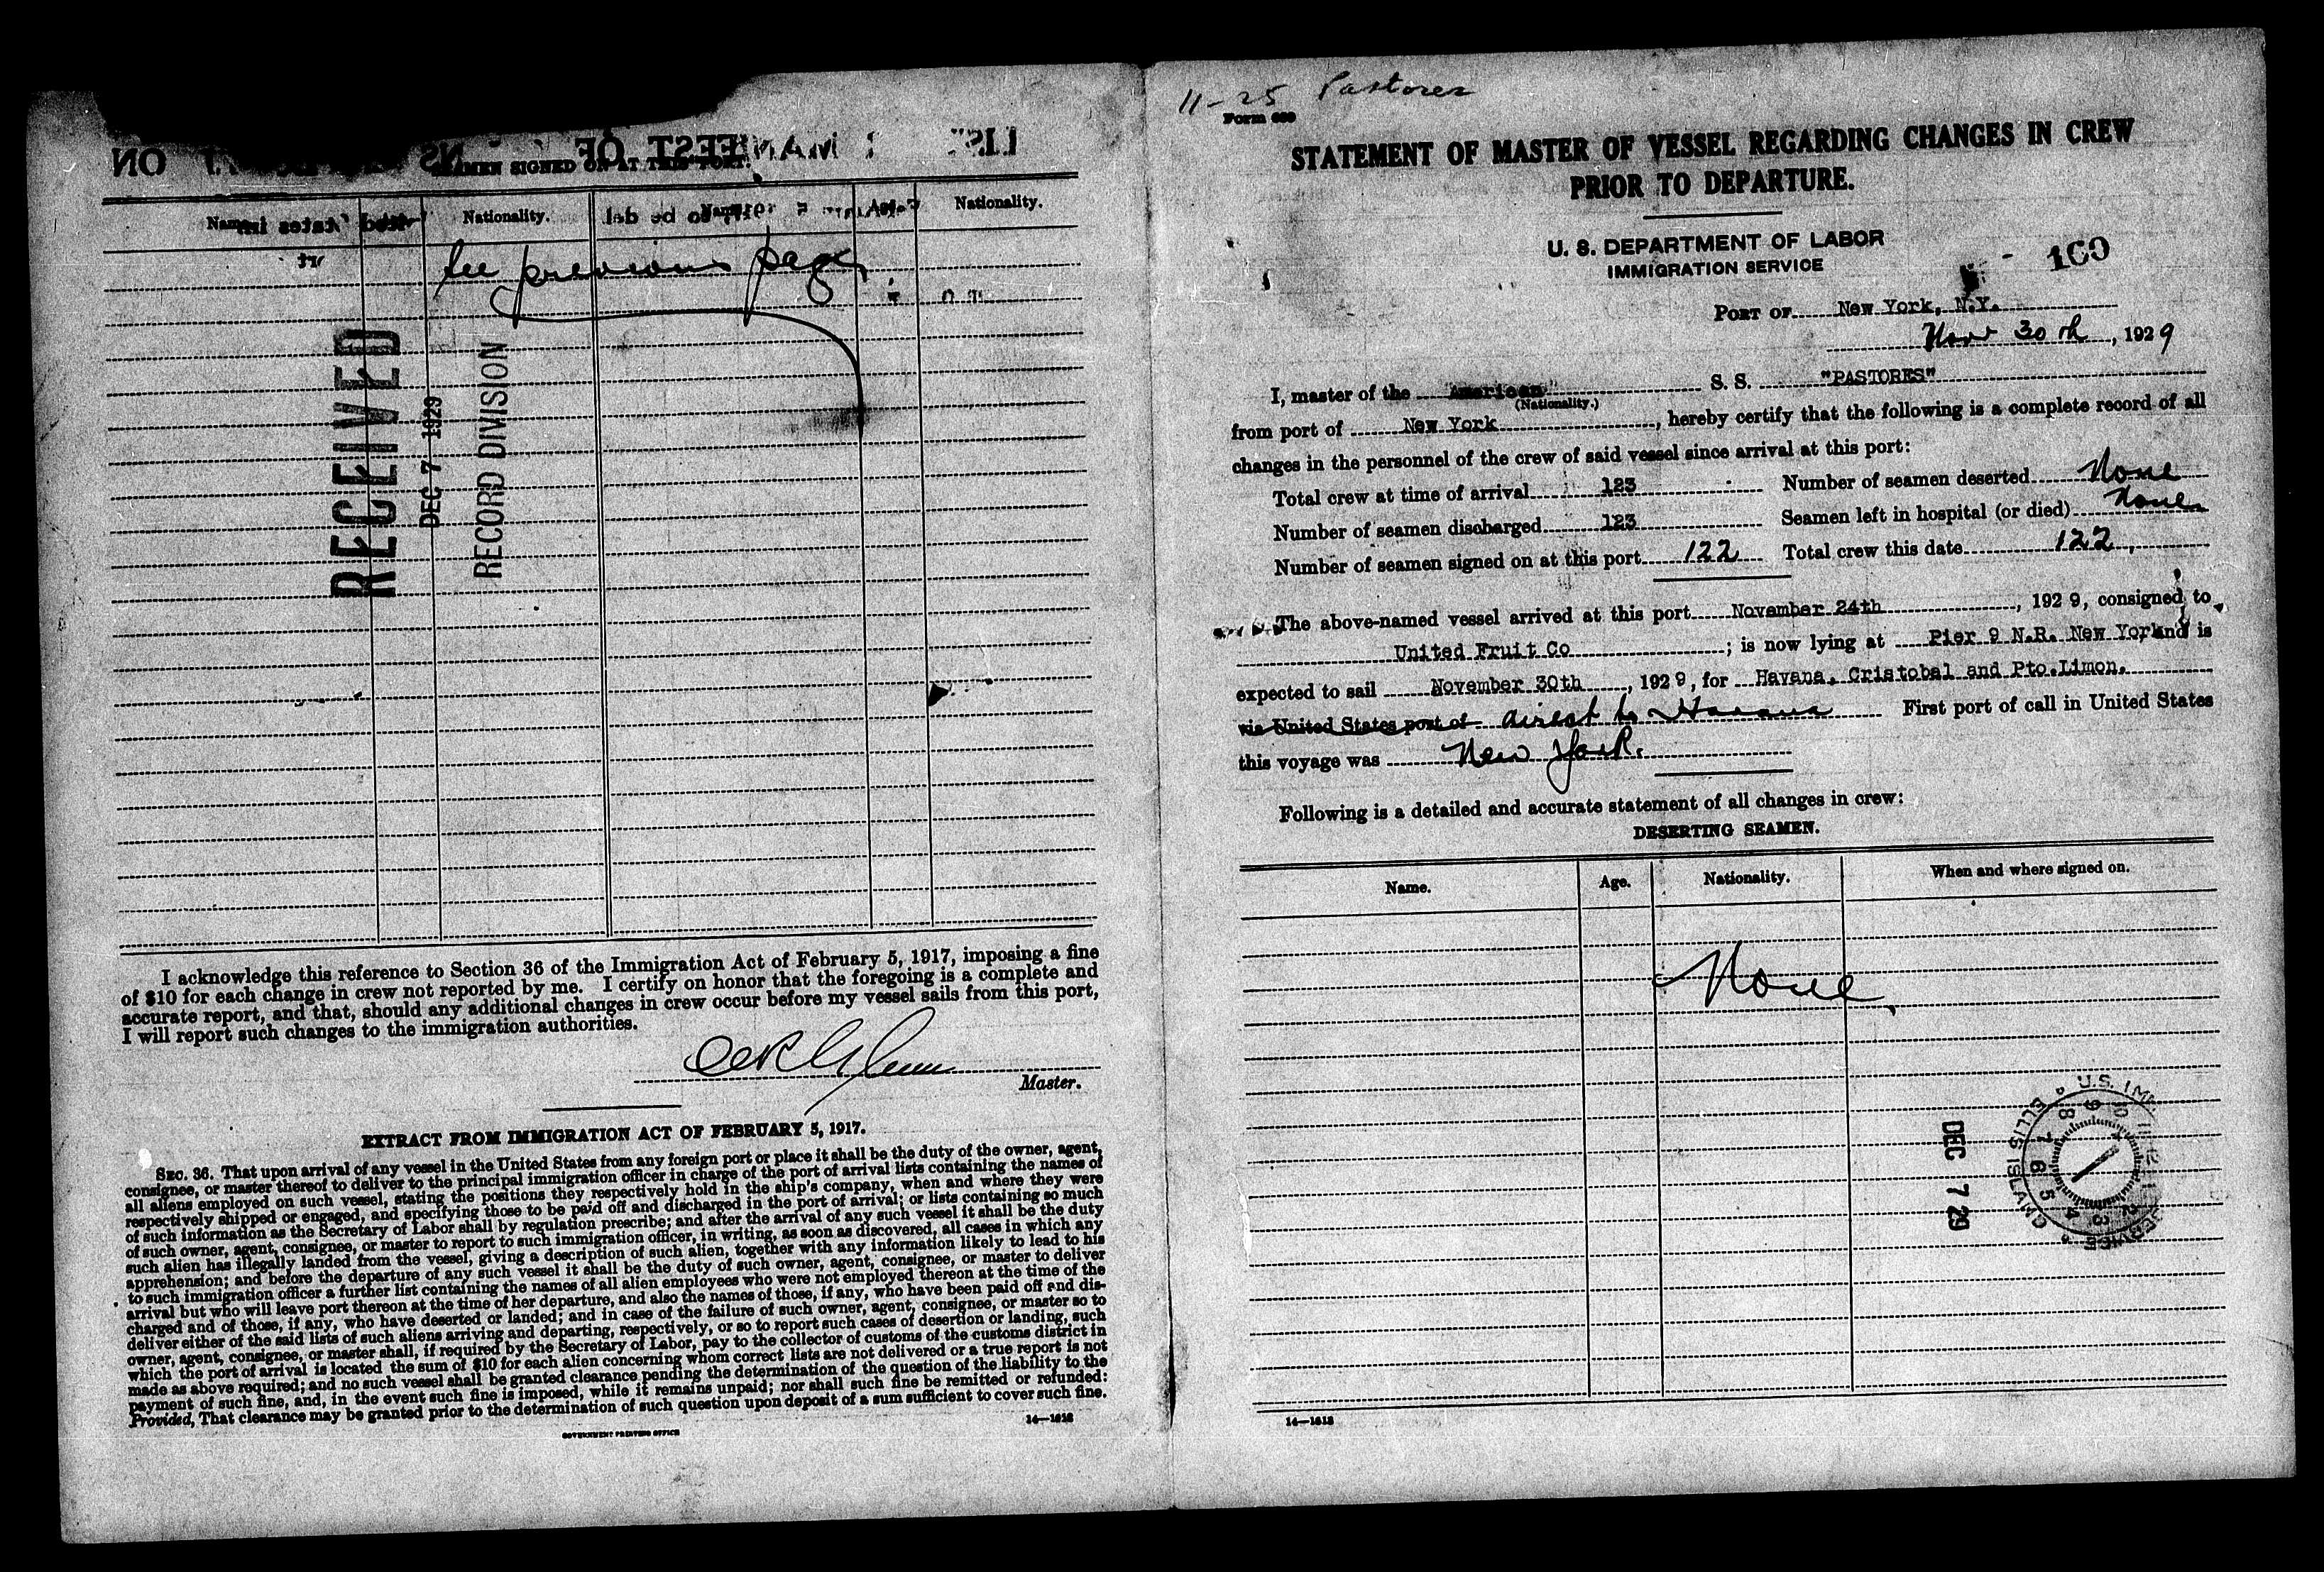 SEAMEN SIGNED ON AT THIS PORT.
Name. Nationality. Name. Age. Nationality.
See previous page
RECEIVED
DEC 7 1929
RECORD DIVISION
I acknowledge this reference to Section 36 of the Immigration Act of February 5, 1917, imposing a fine
of $10 for each change in crew not reported by me. I certify on honor that the foregoing is a complete and
accurate report, and that, should any additional changes in crew occur before my vessel sails from this port,
I will report such changes to the immigration authorities.
Glenn
Master.
EXTRACT FROM IMMIGRATION ACT OF FEBRUARY 5, 1917.
SEC. 36. That upon arrival of any vessel in the United States from any foreign port or place it shall be the duty of the owner, agent,
consignee, or master thereof to deliver to the principal immigration officer in charge of the port of arrival lists containing the names of
all aliens employed on such vessel, stating the positions they respectively hold in the ship's company, when and where they were
respectively shipped or engaged, and specifying those to be paid off and discharged in the port of arrival; or lists containing so much
of such information as the Secretary of Labor shall by regulation prescribe; and after the arrival of any such vessel it shall be the duty
of such owner, agent, consignee, or master to report to such immigration officer, in writing, as soon as discovered, all cases in which any
such alien has illegally landed from the vessel, giving a description of such alien, together with any information likely to lead to his
apprehension; and before the departure of any such vessel it shall be the duty of such owner, agent, consignee, or master to deliver
to such immigration officer a further list containing the names of all alien employees who were not employed thereon at the time of the
arrival but who will leave port thereon at the time of her departure, and also the names of those, if any, who have been paid off and dis-
charged and of those, if any, who have deserted or landed; and in case of the failure of such owner, agent, consignee, or master so to
deliver either of the said lists of such aliens arriving and departing, respectively, or so to report such cases of desertion or landing, such
owner, agent, consignee, or master shall, if required by the Secretary of Labor, pay to the collector of customs of the customs district in
which the port of arrival is located the sum of $10 for each alien concerning whom correct lists are not delivered or a true report is not
made as above required; and no such vessel shall be granted clearance pending the determination of the question of the liability to the
payment of such fine, and, in the event such fine is imposed, while it remains unpaid; nor shall such fine be remitted or refunded:
Provided, That clearance may be granted prior to the determination of such question upon deposit of a sum sufficient to cover such fine.
14—1818
GOVERNMENT PRINTING OFFICE
11-25 Pastores
Form 689
STATEMENT OF MASTER OF VESSEL REGARDING CHANGES IN CREW
PRIOR TO DEPARTURE.
U. S. DEPARTMENT OF LABOR
IMMIGRATION SERVICE
PORT OF New York, N.Y.
Nov 30th, 1929
I, master of the American S. S. "PASTORES"
(Nationality.)
from port of New York, hereby certify that the following is a complete record of all
changes in the personnel of the crew of said vessel since arrival at this port:
Total crew at time of arrival 123 Number of seamen deserted None
Number of seamen discharged 123 Seamen left in hospital (or died) None
Number of seamen signed on at this port 122 Total crew this date 122
The above-named vessel arrived at this port November 24th, 1929, consigned to
United Fruit Co; is now lying at Pier 9 N.R. New York and is
expected to sail November 30th, 1929, for Havana, Cristobal and Pto.Limon.
via United States port of direct to Havana First port of call in United States
this voyage was New York.
Following is a detailed and accurate statement of all changes in crew:
DESERTING SEAMEN.
Name. Age. Nationality. When and where signed on.
None
DEC 7 29
U.S. IMM. SERVICE ELLIS ISLAND
14—1818